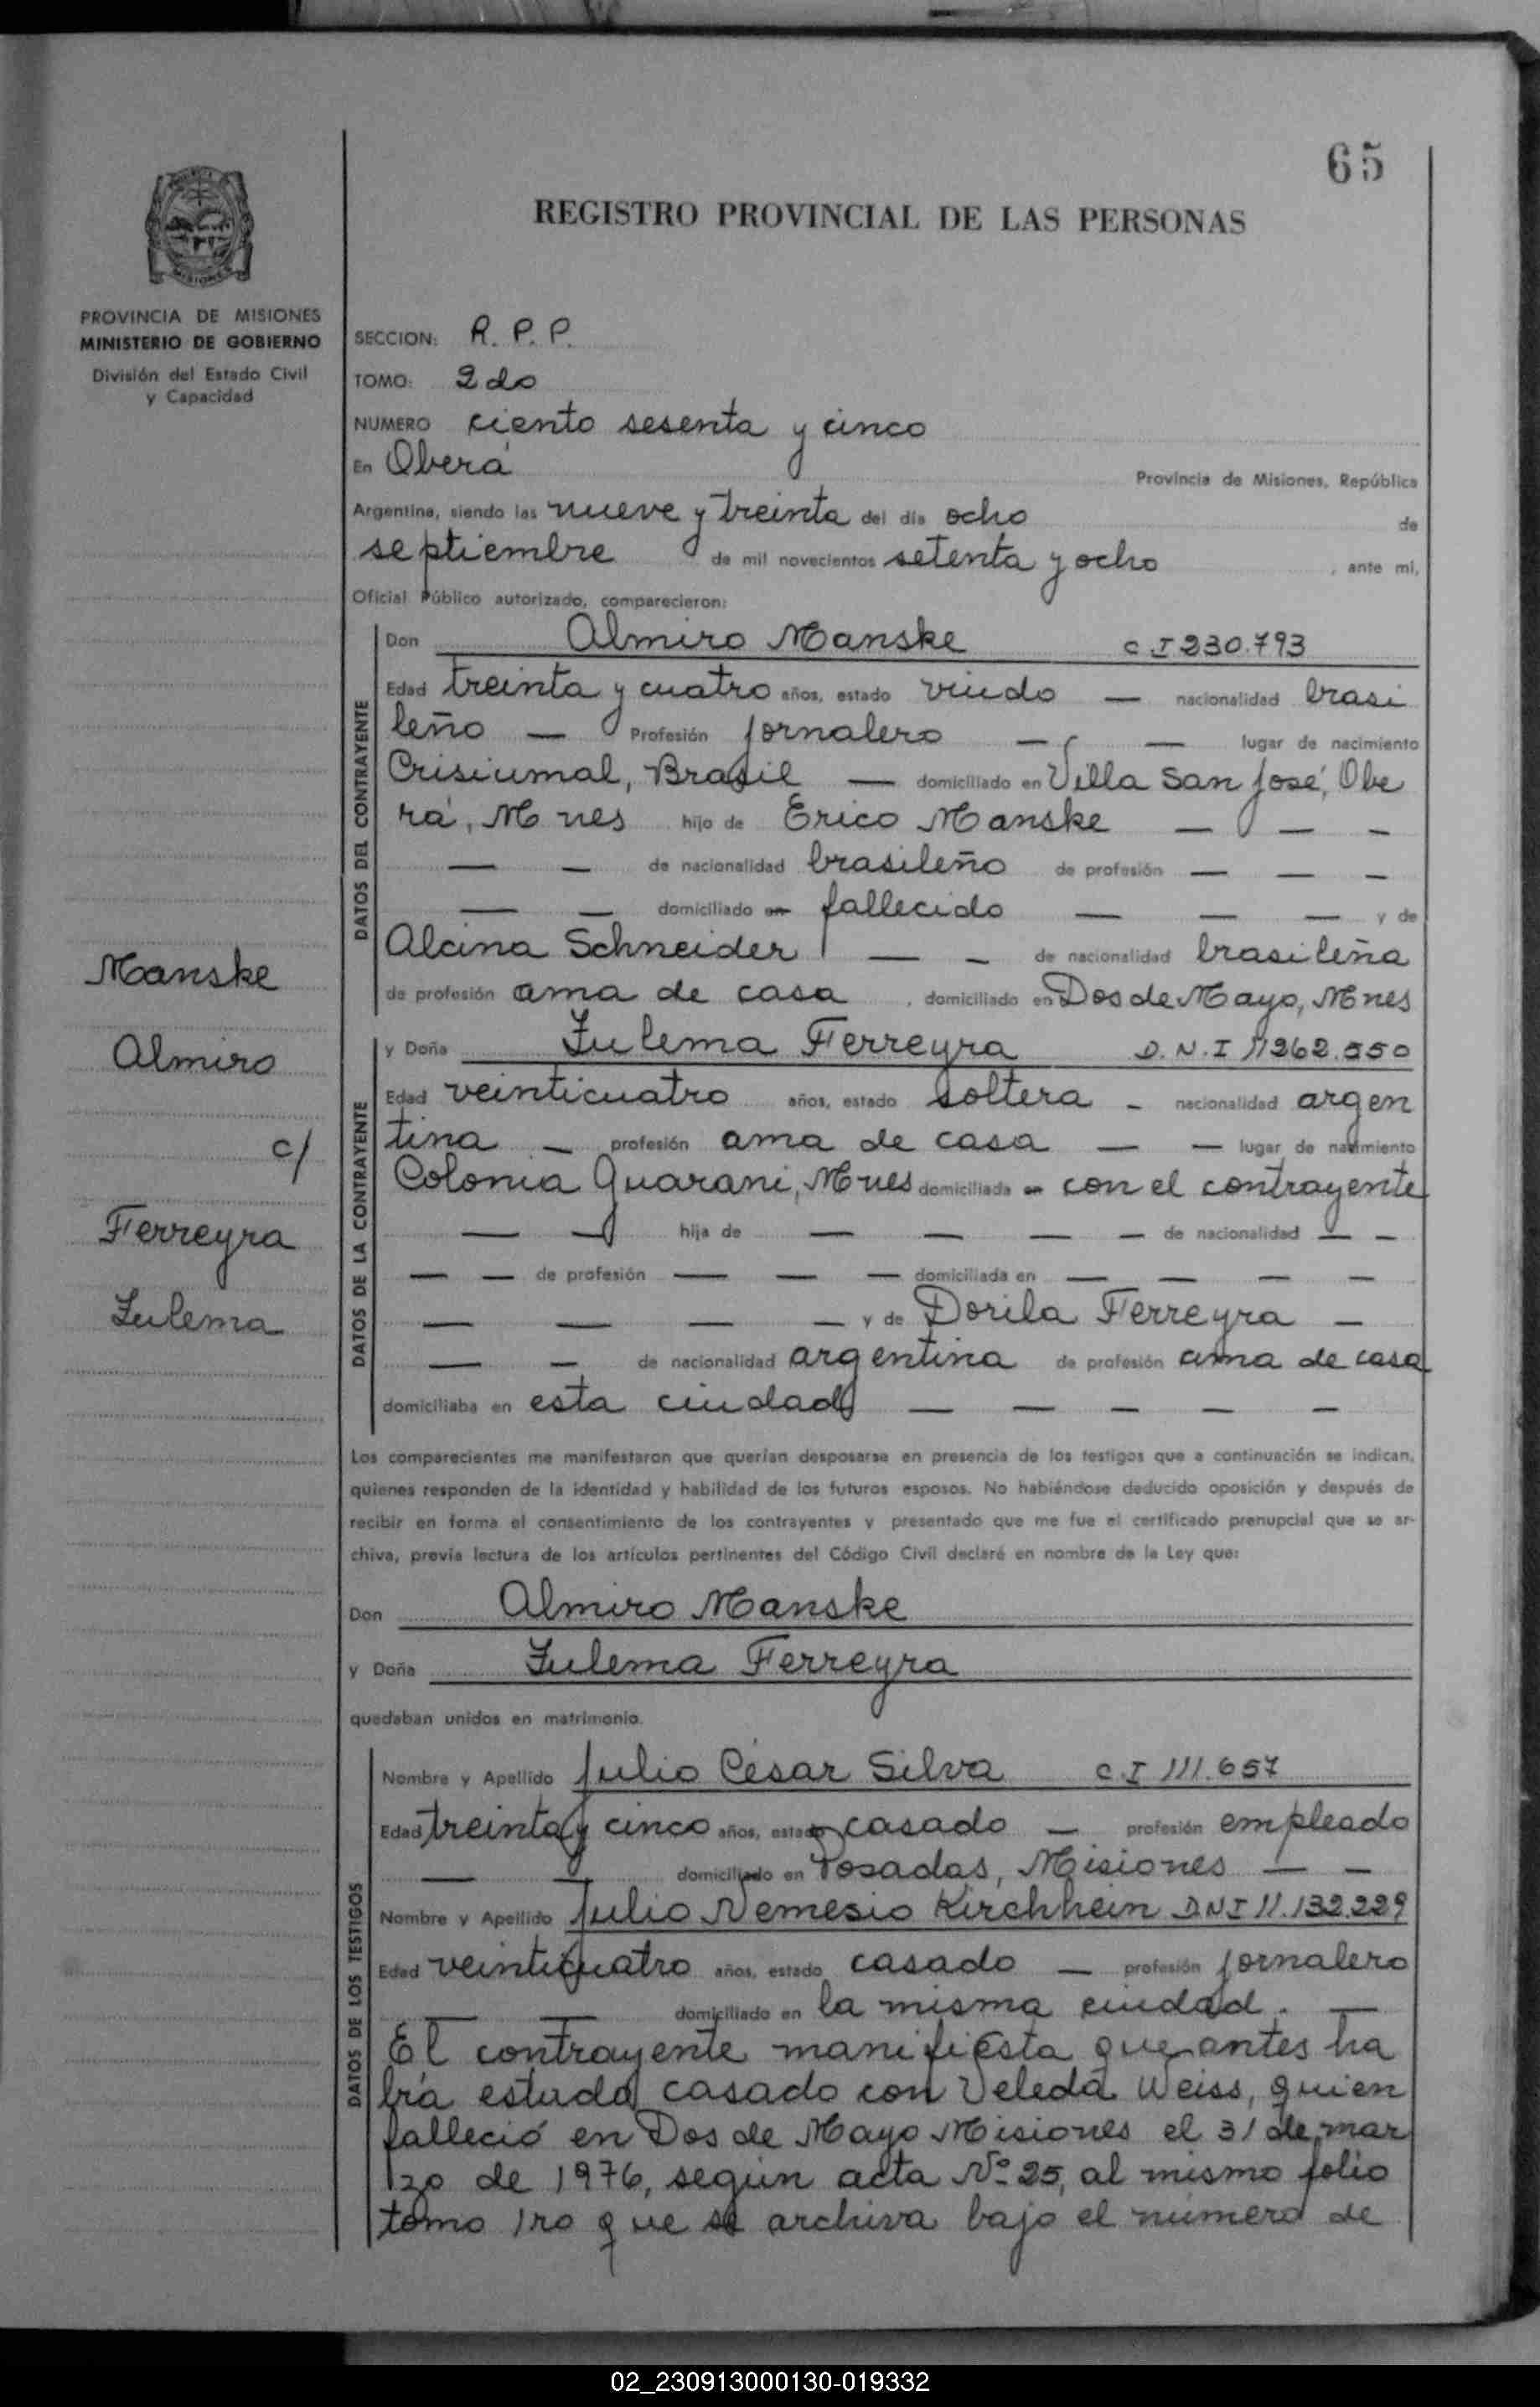 65
REGISTRO PROVINCIAL DE LAS PERSONAS
PROVINCIA DE MISIONES
MINISTERIO DE GOBIERNO
División del Estado Civil
y Capacidad
SECCION: R. P. P.
TOMO: 2do
NUMERO ciento sesenta y cinco
En Oberá Provincia de Misiones, República
Argentina, siendo las nueve y treinta del día ocho de
septiembre de mil novecientos setenta y ocho, ante mi,
Oficial Público autorizado, comparecieron:
DATOS DEL CONTRAYENTE
Don Almiro Manske C.I 230.793
Edad treinta y cuatro años, estado viudo — nacionalidad brasi
leño — Profesión jornalero — — lugar de nacimiento
Crisiumal, Brasil — domiciliado en Villa San José, Obe
rá, Mnes hijo de Erico Manske — — —
— — de nacionalidad brasileño de profesión — — —
— — domiciliado en fallecido — — — y de
Alcina Schneider — — de nacionalidad brasileña
de profesión ama de casa, domiciliado en Dos de Mayo, Mnes
Manske
Almiro
c/
Ferreyra
Zulema
DATOS DE LA CONTRAYENTE
y Doña Zulema Ferreyra D.N.I 11262.550
Edad veinticuatro años, estado soltera - nacionalidad argen
tina — profesión ama de casa — — lugar de nacimiento
Colonia Guarani, Mnes domiciliada en con el contrayente
— — hija de — — — — de nacionalidad — —
— — de profesión — — — domiciliada en — — — —
— — — — y de Dorila Ferreyra —
— — de nacionalidad argentina de profesión ama de casa
domiciliaba en esta ciudad — — — — —
Los comparecientes me manifestaron que querían desposarse en presencia de los testigos que a continuación se indican,
quienes responden de la identidad y habilidad de los futuros esposos. No habiéndose deducido oposición y después de
recibir en forma el consentimiento de los contrayentes y presentado que me fue el certificado prenupcial que se ar-
chiva, previa lectura de los artículos pertinentes del Código Civil declaré en nombre de la Ley que:
Don Almiro Manske
y Doña Zulema Ferreyra
quedaban unidos en matrimonio.
DATOS DE LOS TESTIGOS
Nombre y Apellido Julio César Silva C.I 111.657
Edad treinta y cinco años, estado casado — profesión empleado
— — domiciliado en Posadas, Misiones — —
Nombre y Apellido Julio Nemesio Kirchhein DNI 11.132.229
Edad veinticuatro años, estado casado — profesión jornalero
— — domiciliado en la misma ciudad. —
El contrayente manifiesta que antes ha
bía estado casado con Veleda Weiss, quien
falleció en Dos de Mayo Misiones el 31 de mar
zo de 1976, según acta Nº 25, al mismo folio
tomo 1ro que se archiva bajo el número de
02_230913000130-019332